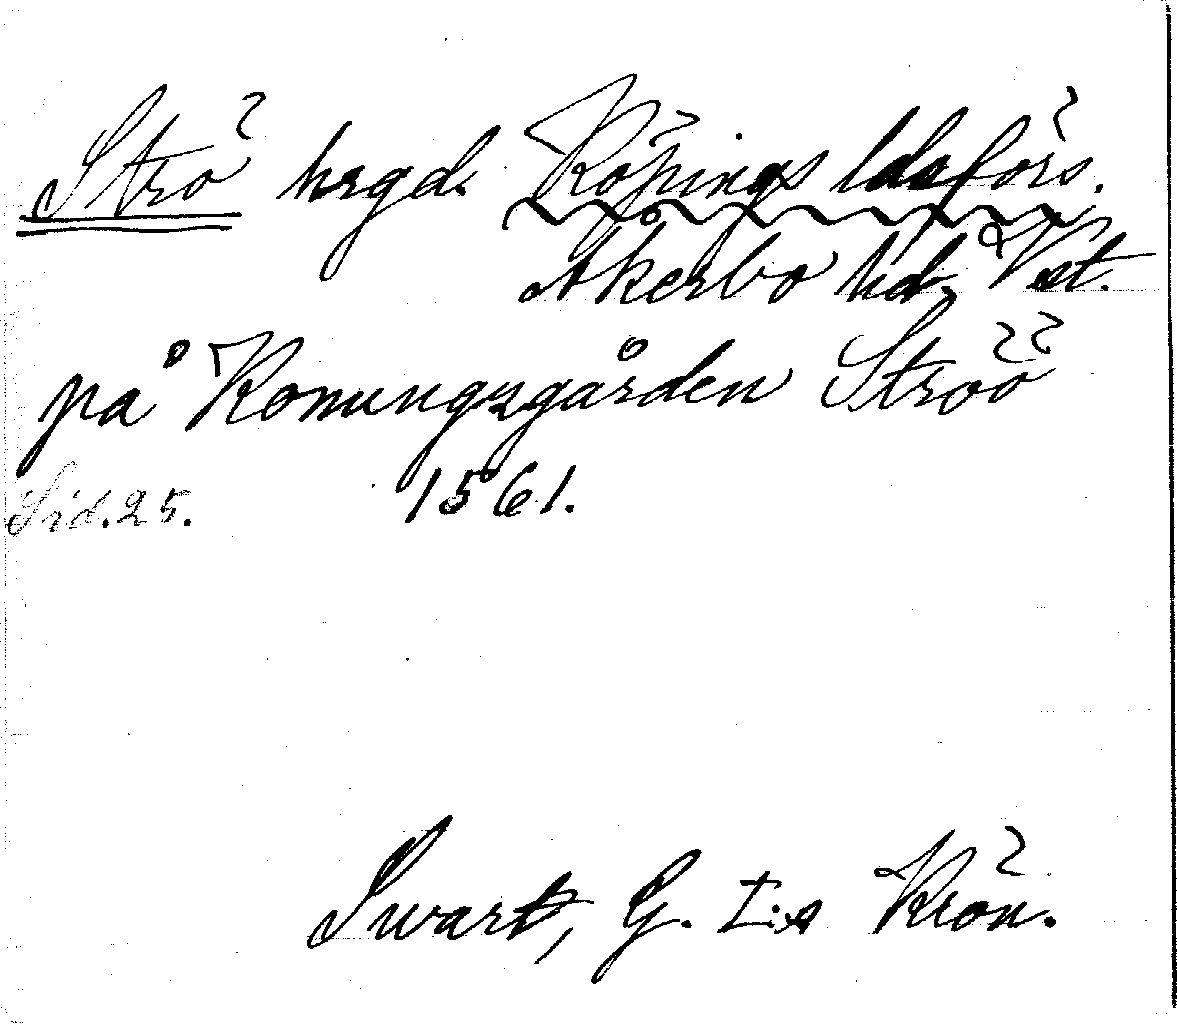 Strö hrgd. Köpings ldsförs.
Åkerbo hd, Vst.
på Konungzgården Ströö
Sid. 25. 1561.
Swart, G. I:s Krön.